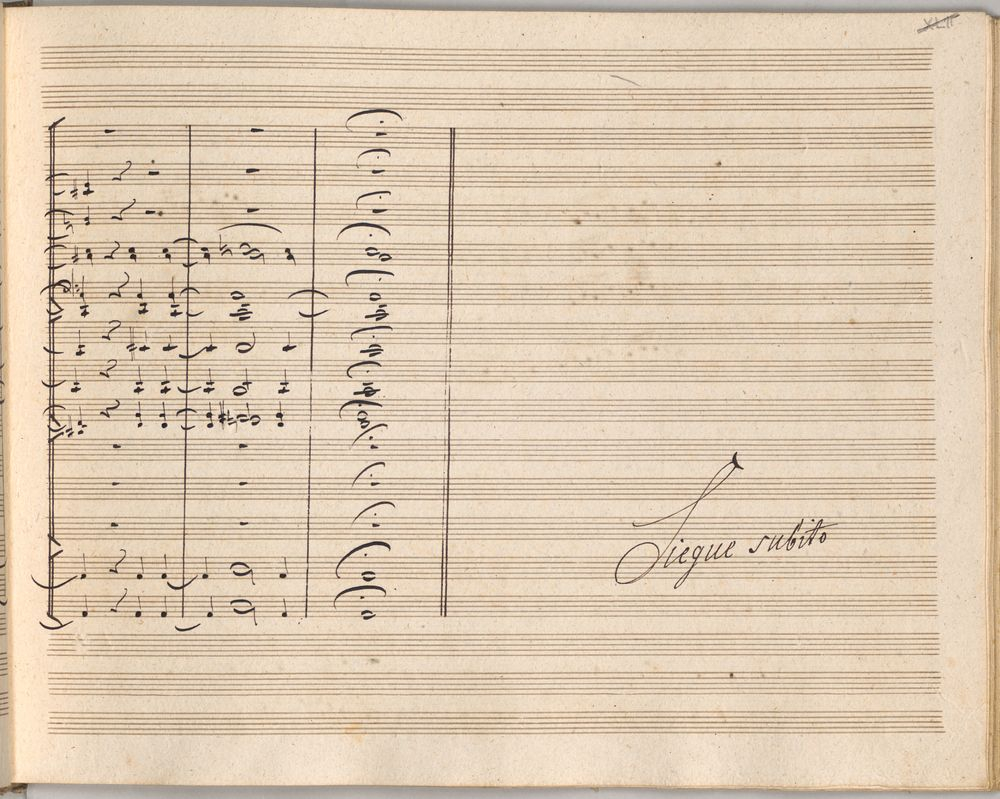 XLII
Siegue subito